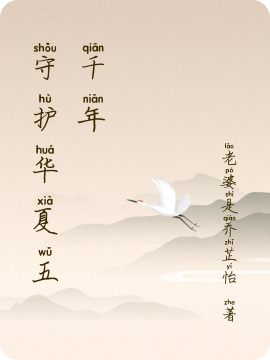 shǒu hù huá xià wǔ
守护华夏五
qiān nián
千年
lǎo pó shì qiáo zhǐ yí zhe
老婆是乔芷怡 著